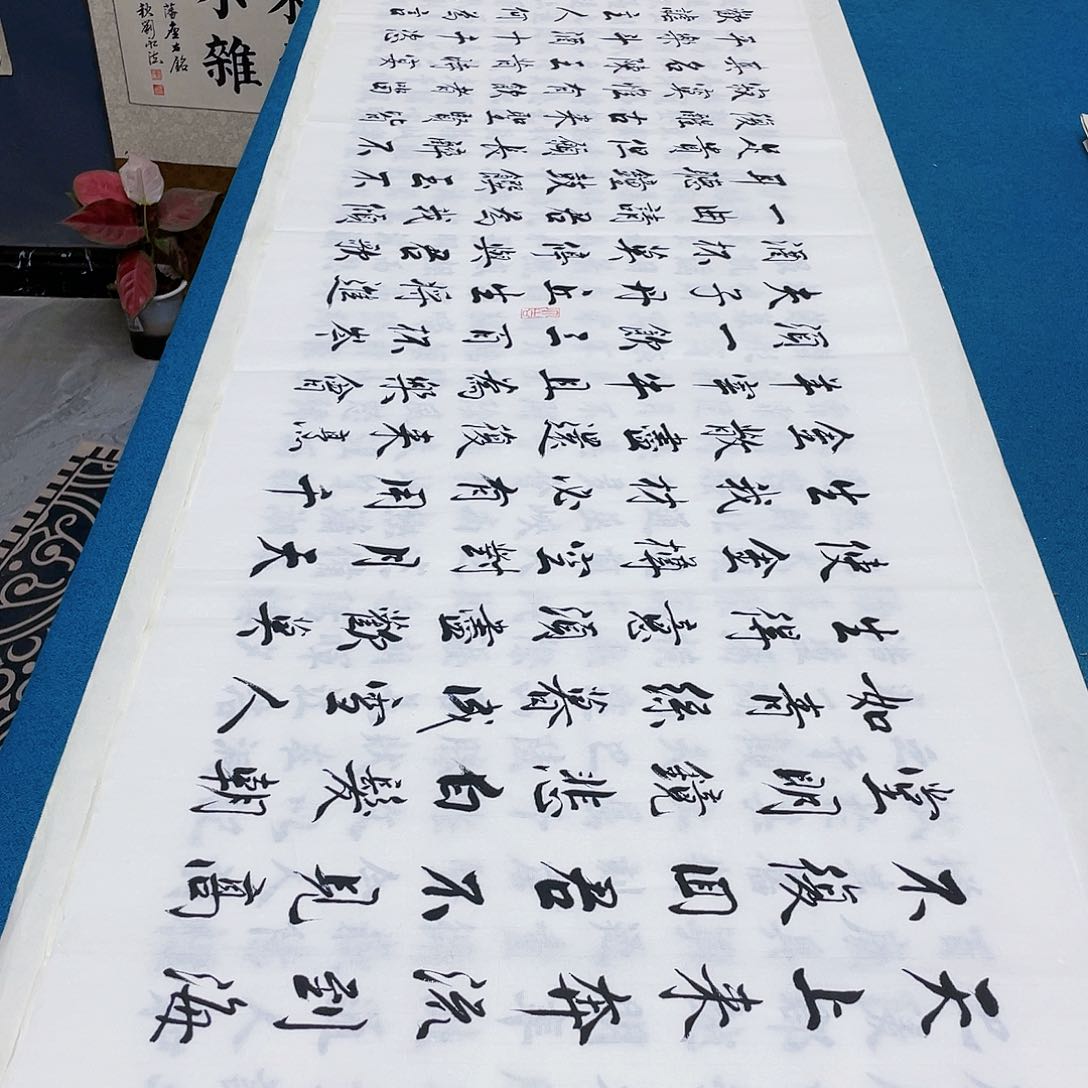 天上來奔流到海
不復回君不見高
堂明鏡悲白髮朝
如青絲暮成雪人
生得意須盡歡莫
使金樽空對月天
生我材必有用千
金散盡還復來烹
羊宰牛且為樂會
須一飲三百杯岑
夫子丹丘生將進
酒杯莫停與君歌
一曲請君為我傾
耳聽鐘鼓饌玉不
足貴但願長醉不
復醒古來聖賢皆
寂寞惟有飲者留
其名陳王昔時宴
平樂斗酒十千恣
歡謔主人何為言
雜